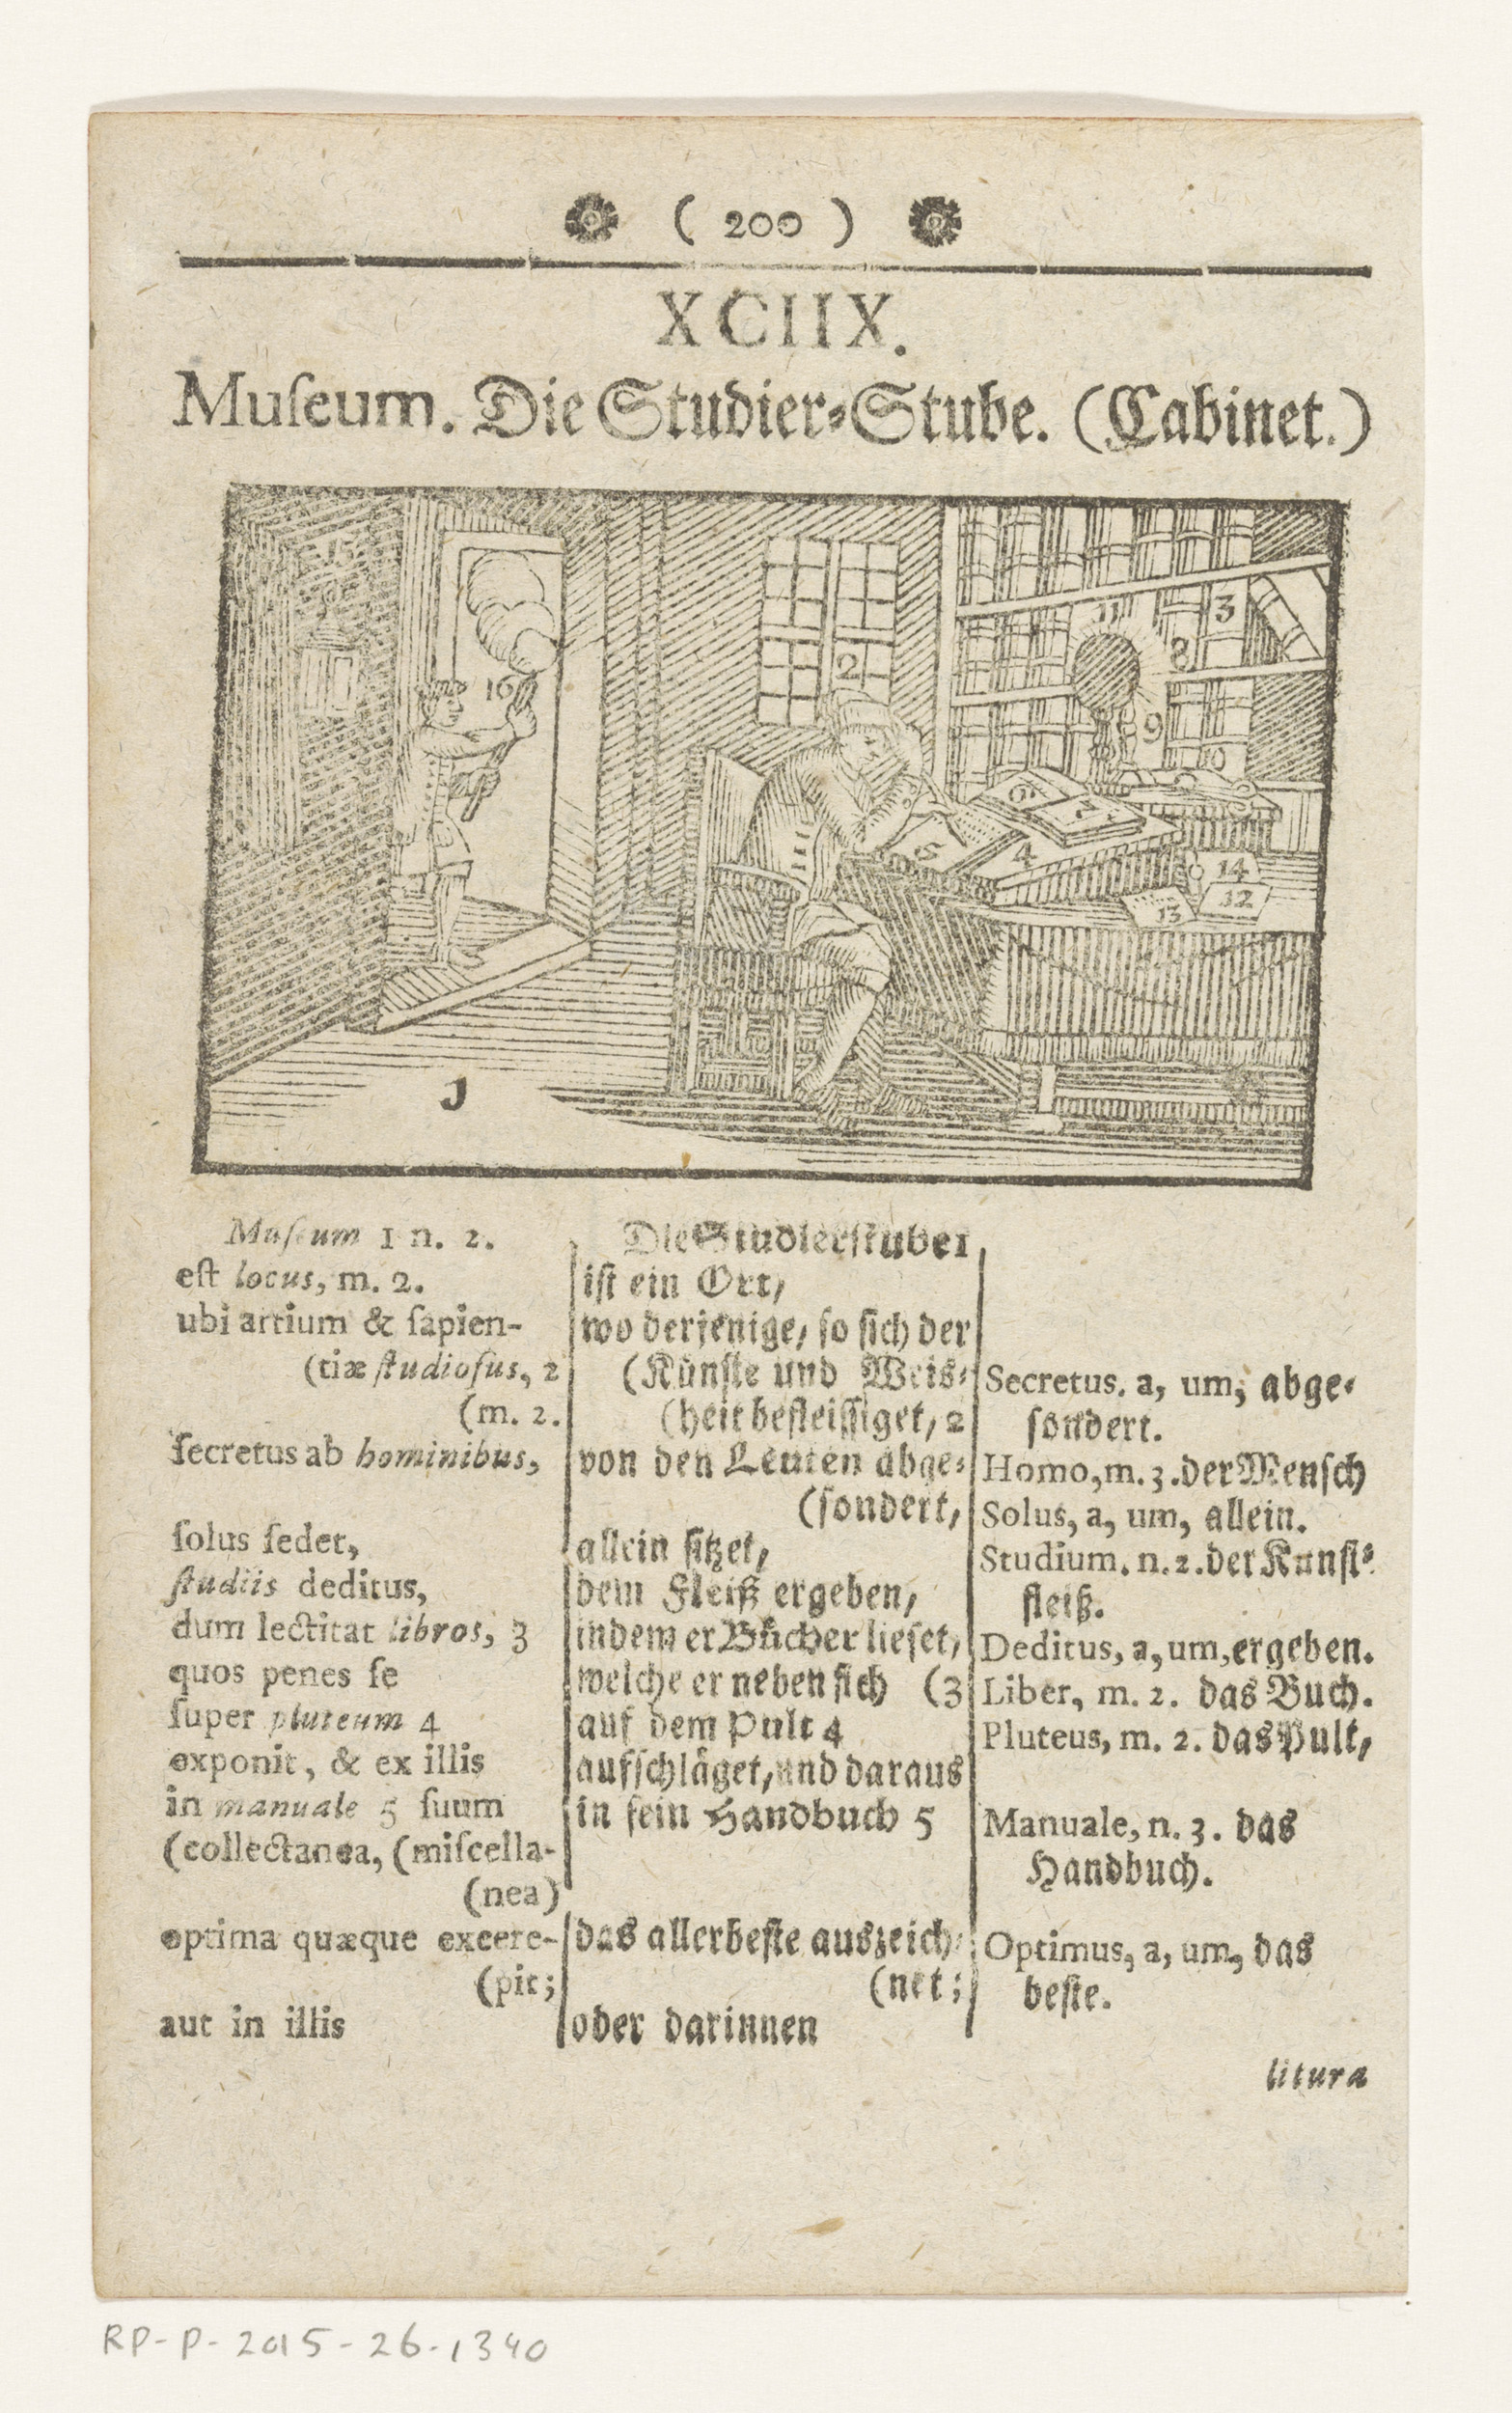 ( 200 )
XCIIX.
Muſeum. Die Studier⸗Stube. (Cabinet.)
15
16
2
11
3
8
9
6
7
5
4
14
12
13
1
Muſeum 1 n. 2.
eſt locus, m. 2.
ubi artium & ſapien-
(tiæ ſtudioſus, 2
(m. 2.
ſecretus ab hominibus,
ſolus ſedet,
ſtudiis deditus,
dum lectitat libros, 3
quos penes ſe
ſuper pluteum 4
exponit, & ex illis
in manuale 5 ſuum
(collectanea, (miſcella-
(nea)
optima quæque excere-
(pit;
aut in illis
Die Studierſtube 1
iſt ein Ort/
wo derjenige/ ſo ſich der
(Künſte und Weis⸗
(heit befleiſſiget/ 2
von den Leuten abge⸗
(ſondert/
allein ſitzet/
dem Fleiß ergeben/
indem er Bücher lieſet/
welche er neben ſich (3
auf dem Pult 4
aufſchläget/ und daraus
in ſein Handbuch 5
das allerbeſte auszeich⸗
(net;
oder darinnen
Secretus, a, um, abge⸗
ſondert.
Homo, m. 3. der Menſch
Solus, a, um, allein.
Studium. n. 2. der Kunſt⸗
fleiß.
Deditus, a, um, ergeben.
Liber, m. 2. das Buch.
Pluteus, m. 2. das Pult/
Manuale, n. 3. das
Handbuch.
Optimus, a, um, das
beſte.
litura
RP-P-2015-26-1340